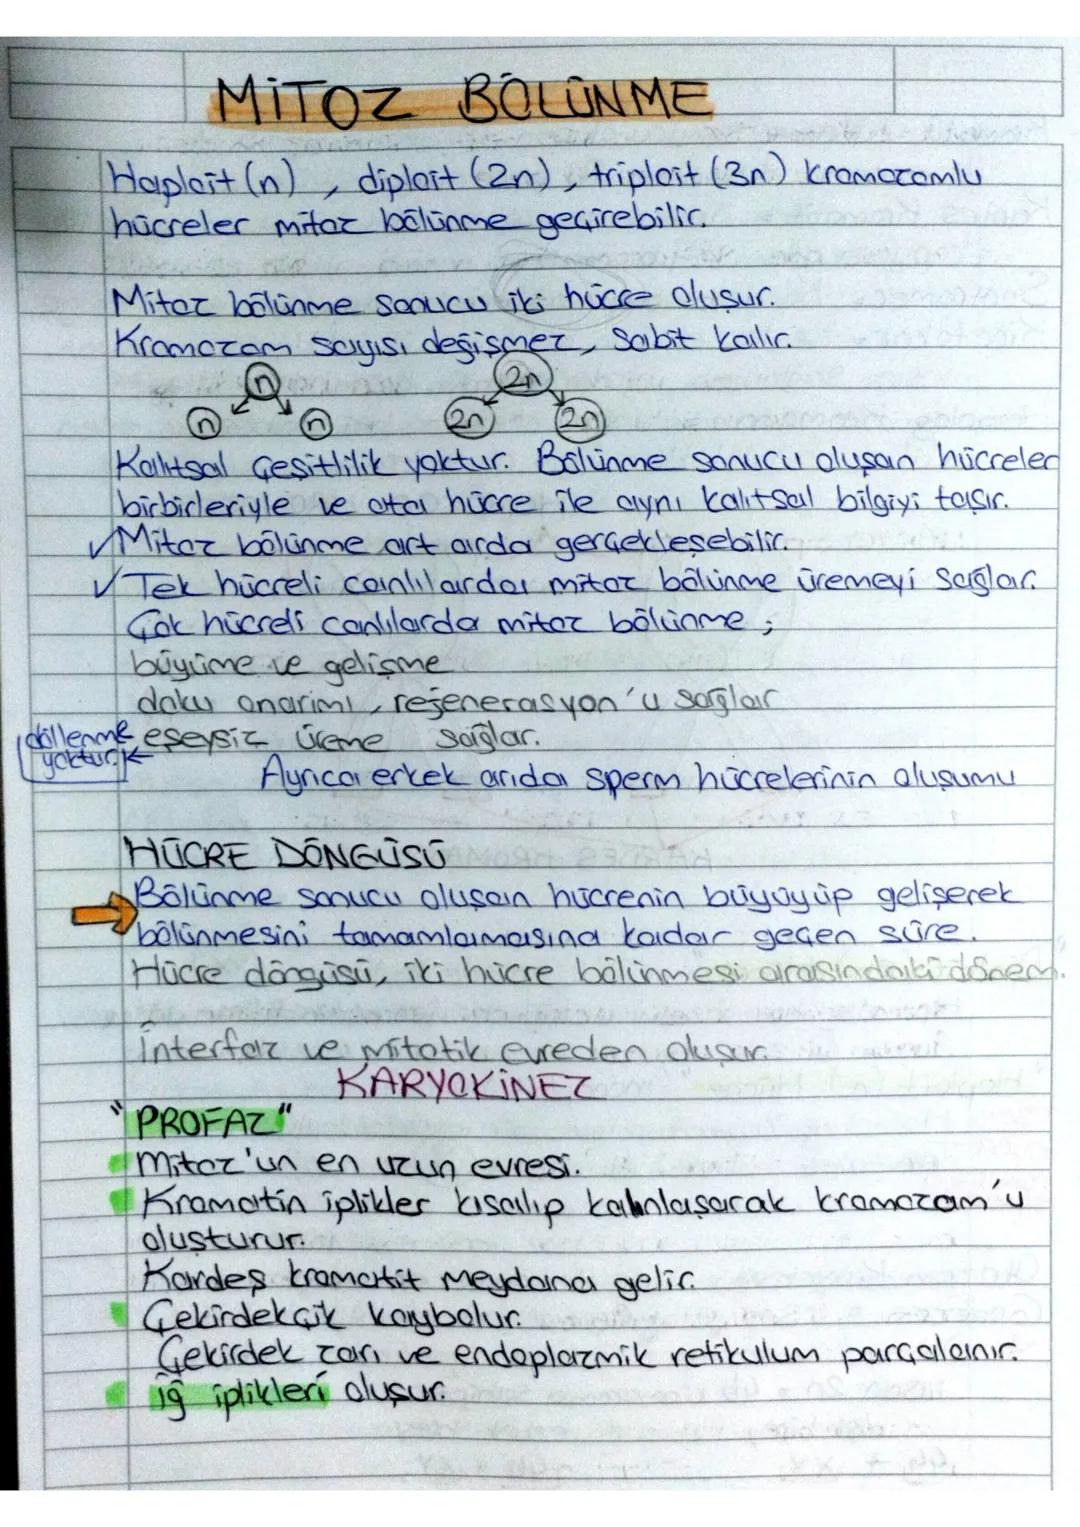 MİTOZ BÖLÜNME
Haploit (n), diploit (2n), triploit (3n) kromozomlu
hücreler mitoz bölünme geçirebilir.
Mitoz bölünme sonucu iki hücre oluşur.
Kromozom sayısı değişmez, sabit kalır.
n 2n
n n 2n 2n
Kalıtsal Çeşitlilik yoktur. Bölünme sonucu oluşan hücreler
birbirleriyle ve ata hücre ile aynı kalıtsal bilgiyi taşır.
✓Mitoz bölünme art arda gerçekleşebilir.
✓Tek hücreli canlılarda mitoz bölünme üremeyi sağlar.
Çok hücreli canlılarda mitoz bölünme ;
büyüme ve gelişme
doku onarımı, rejenerasyon'u sağlar
döllenme eşeysiz üreme sağlar.
yoktur.
Ayrıca erkek arıda sperm hücrelerinin oluşumu
HÜCRE DÖNGÜSÜ
Bölünme sonucu oluşan hücrenin büyüyüp gelişerek
bölünmesini tamamlamasına kadar geçen süre.
Hücre döngüsü, iki hücre bölünmesi arasındaki dönem.
İnterfaz ve Mitotik evreden oluşur.
KARYOKİNEZ
"PROFAZ"
Mitoz'un en uzun evresi.
Kromatin iplikler kısalıp kalınlaşarak kromozom'u
oluşturur.
Kardeş kromatit meydana gelir.
Çekirdekçik kaybolur.
Çekirdek zarı ve endoplazmik retikulum parçalanır.
iğ iplikleri oluşur.